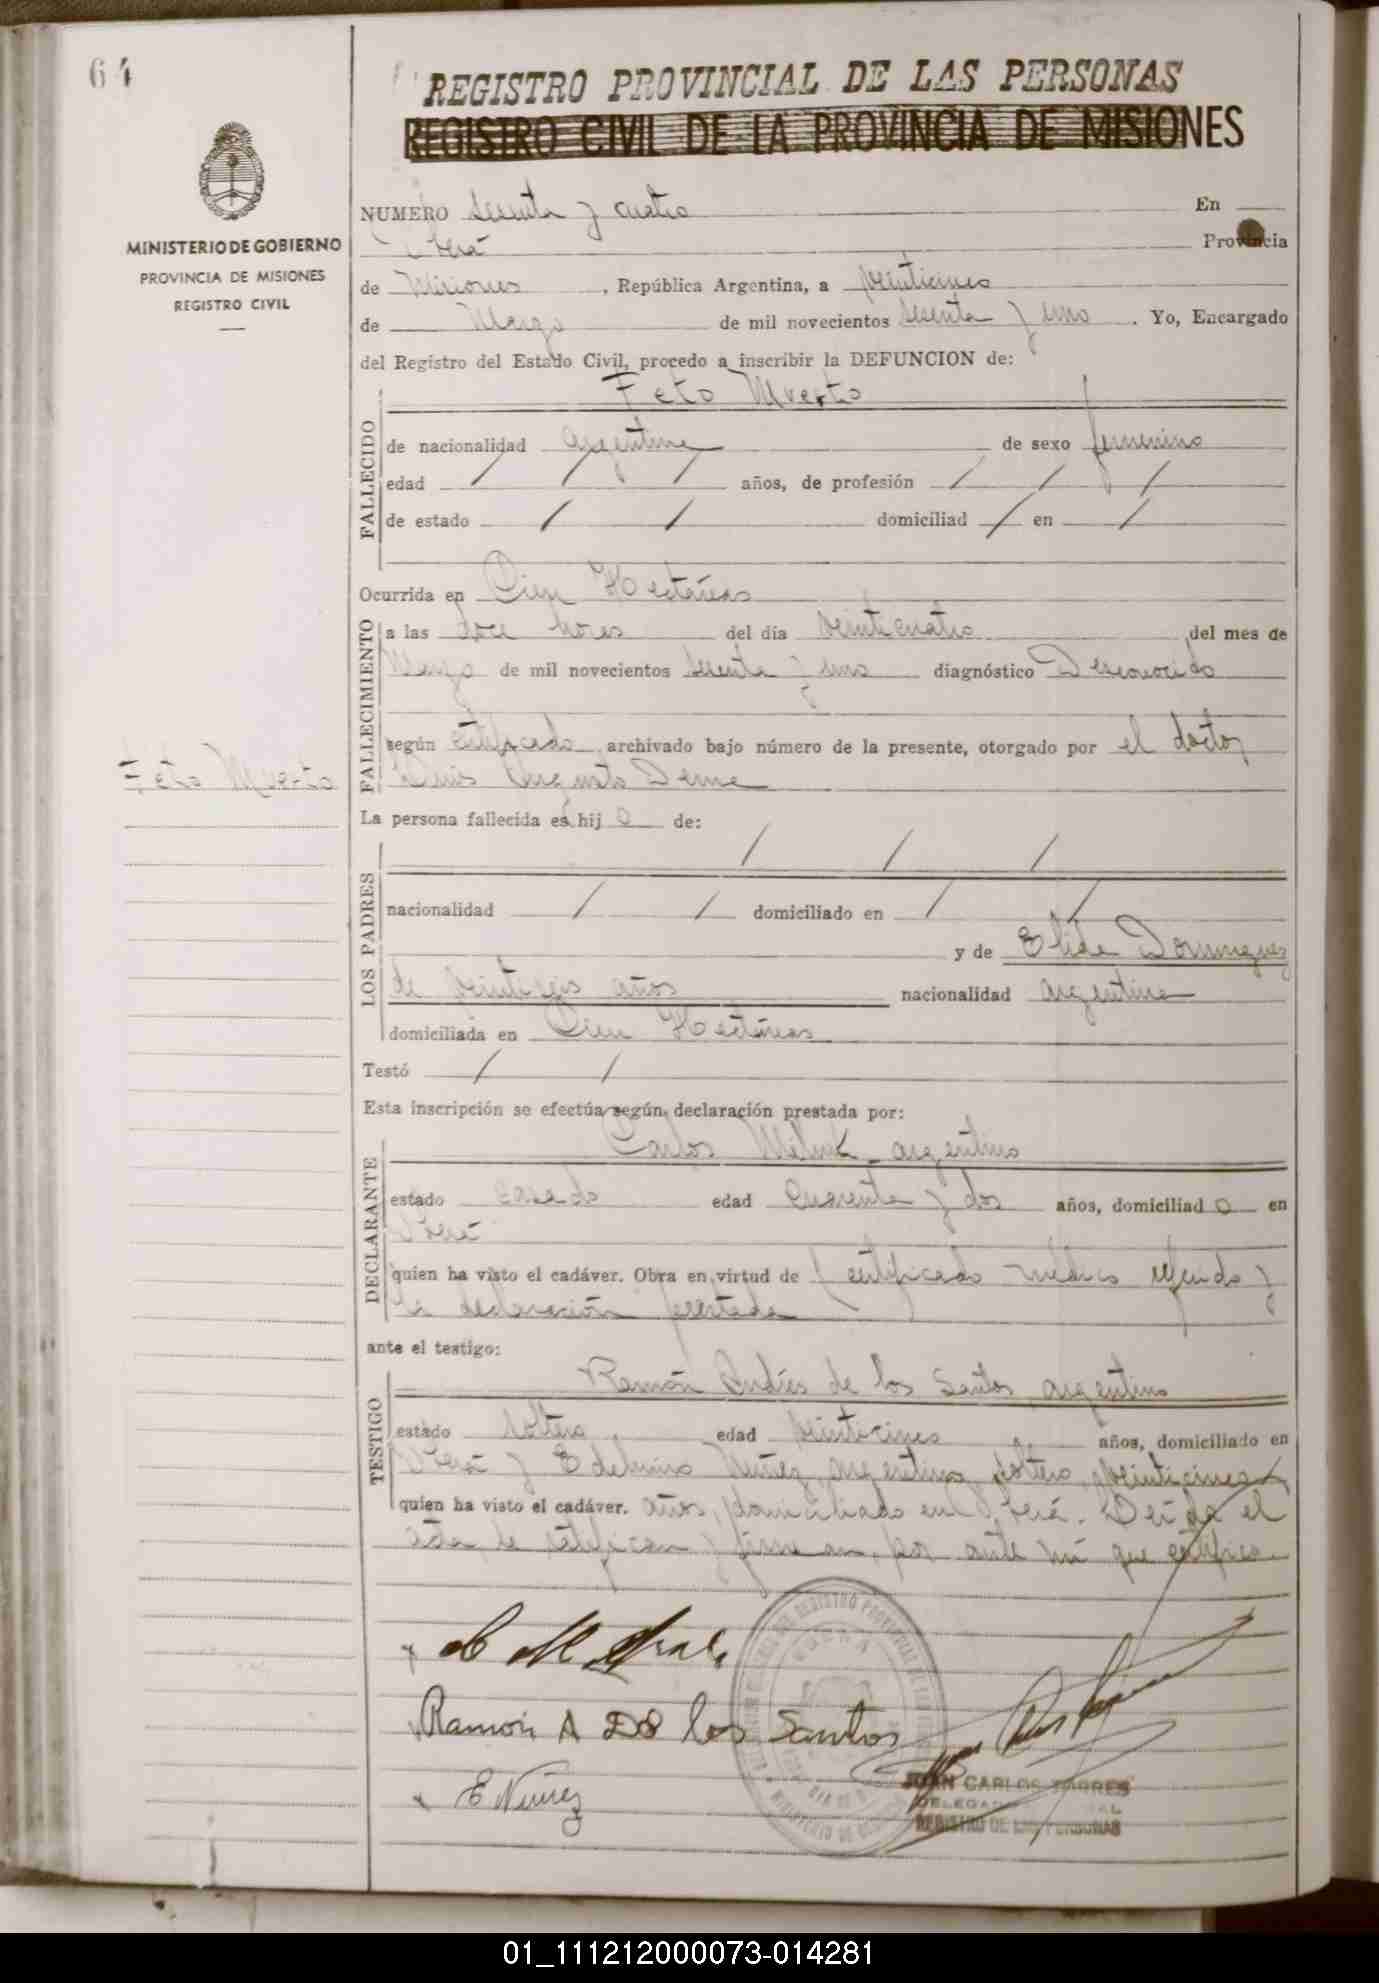 64
REGISTRO PROVINCIAL DE LAS PERSONAS
REGISTRO CIVIL DE LA PROVINCIA DE MISIONES
MINISTERIO DE GOBIERNO
PROVINCIA DE MISIONES
REGISTRO CIVIL
NUMERO sesenta y cuatro En
Oberá Provincia
de Misiones, República Argentina, a veinticinco
de Marzo de mil novecientos sesenta y uno. Yo, Encargado
del Registro del Estado Civil, procedo a inscribir la DEFUNCION de:
Feto Muerto
FALLECIDO
de nacionalidad argentina de sexo femenino
edad / / / años, de profesión / / /
de estado / / domiciliad / en /
Ocurrida en Cien Hectáreas
FALLECIMIENTO
a las doce horas del día veinticuatro del mes de
Marzo de mil novecientos sesenta y uno diagnóstico Desconocido
según certificado archivado bajo número de la presente, otorgado por el doctor
Luis Augusto Derna
Feto Muerto
La persona fallecida es hij o de:
/ / /
LOS PADRES
nacionalidad / / domiciliado en / /
y de Elida Dominguez
de veintiseis años nacionalidad argentina
domiciliada en Cien Hectáreas
Testó / /
Esta inscripción se efectúa según declaración prestada por:
Carlos argentino
DECLARANTE
estado casado edad cuarenta y dos años, domiciliad o en
Oberá
quien ha visto el cadáver. Obra en virtud de certificado médico referido y
la declaración prestada
ante el testigo:
Ramón Andrés de los Santos, argentino
TESTIGO
estado soltero edad veinticinco años, domiciliado en
Oberá y Edelmiro Nuñez, argentino, soltero, veinticinco
quien ha visto el cadáver. años, domiciliado en Oberá. Leída el
acta, la ratifican y firman, por ante mí que certifico.
Ramón A De los Santos
E Nuñez
JUAN CARLOS TORRES
REGISTRO DE LAS PERSONAS
01_111212000073-014281